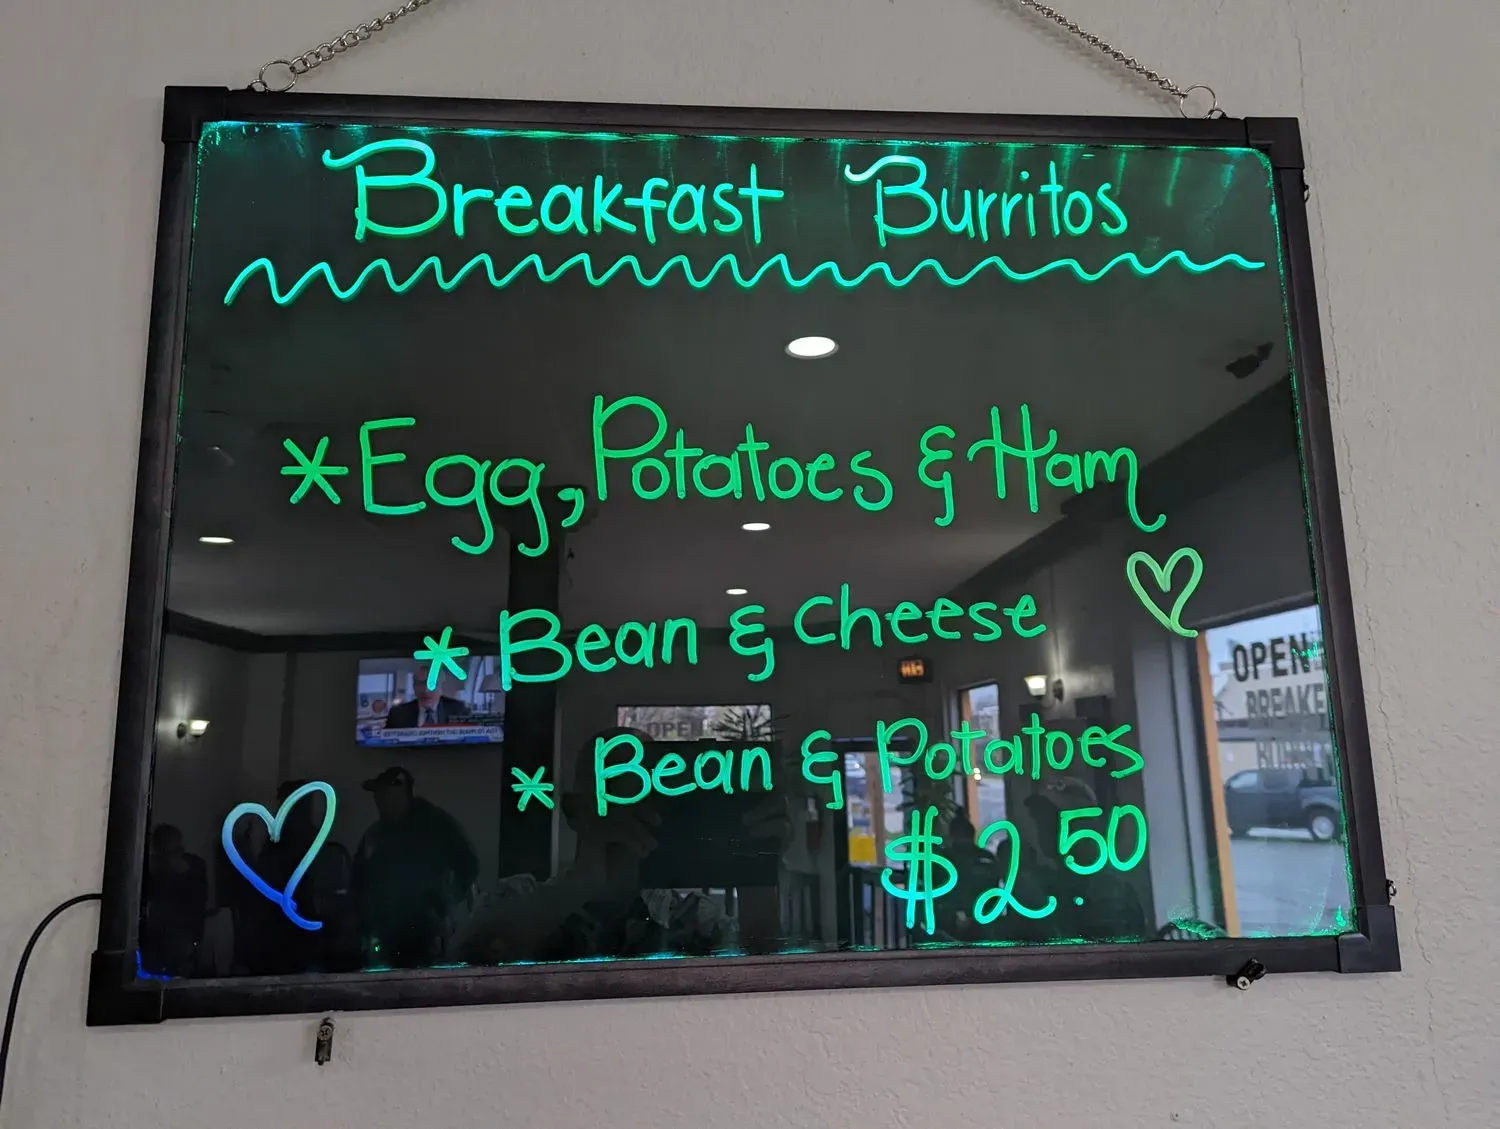 Breakfast Burritos
*Egg, Potatoes & Ham
* Bean & cheese
* Bean & Potatoes
$2.50
OPEN
OPEN